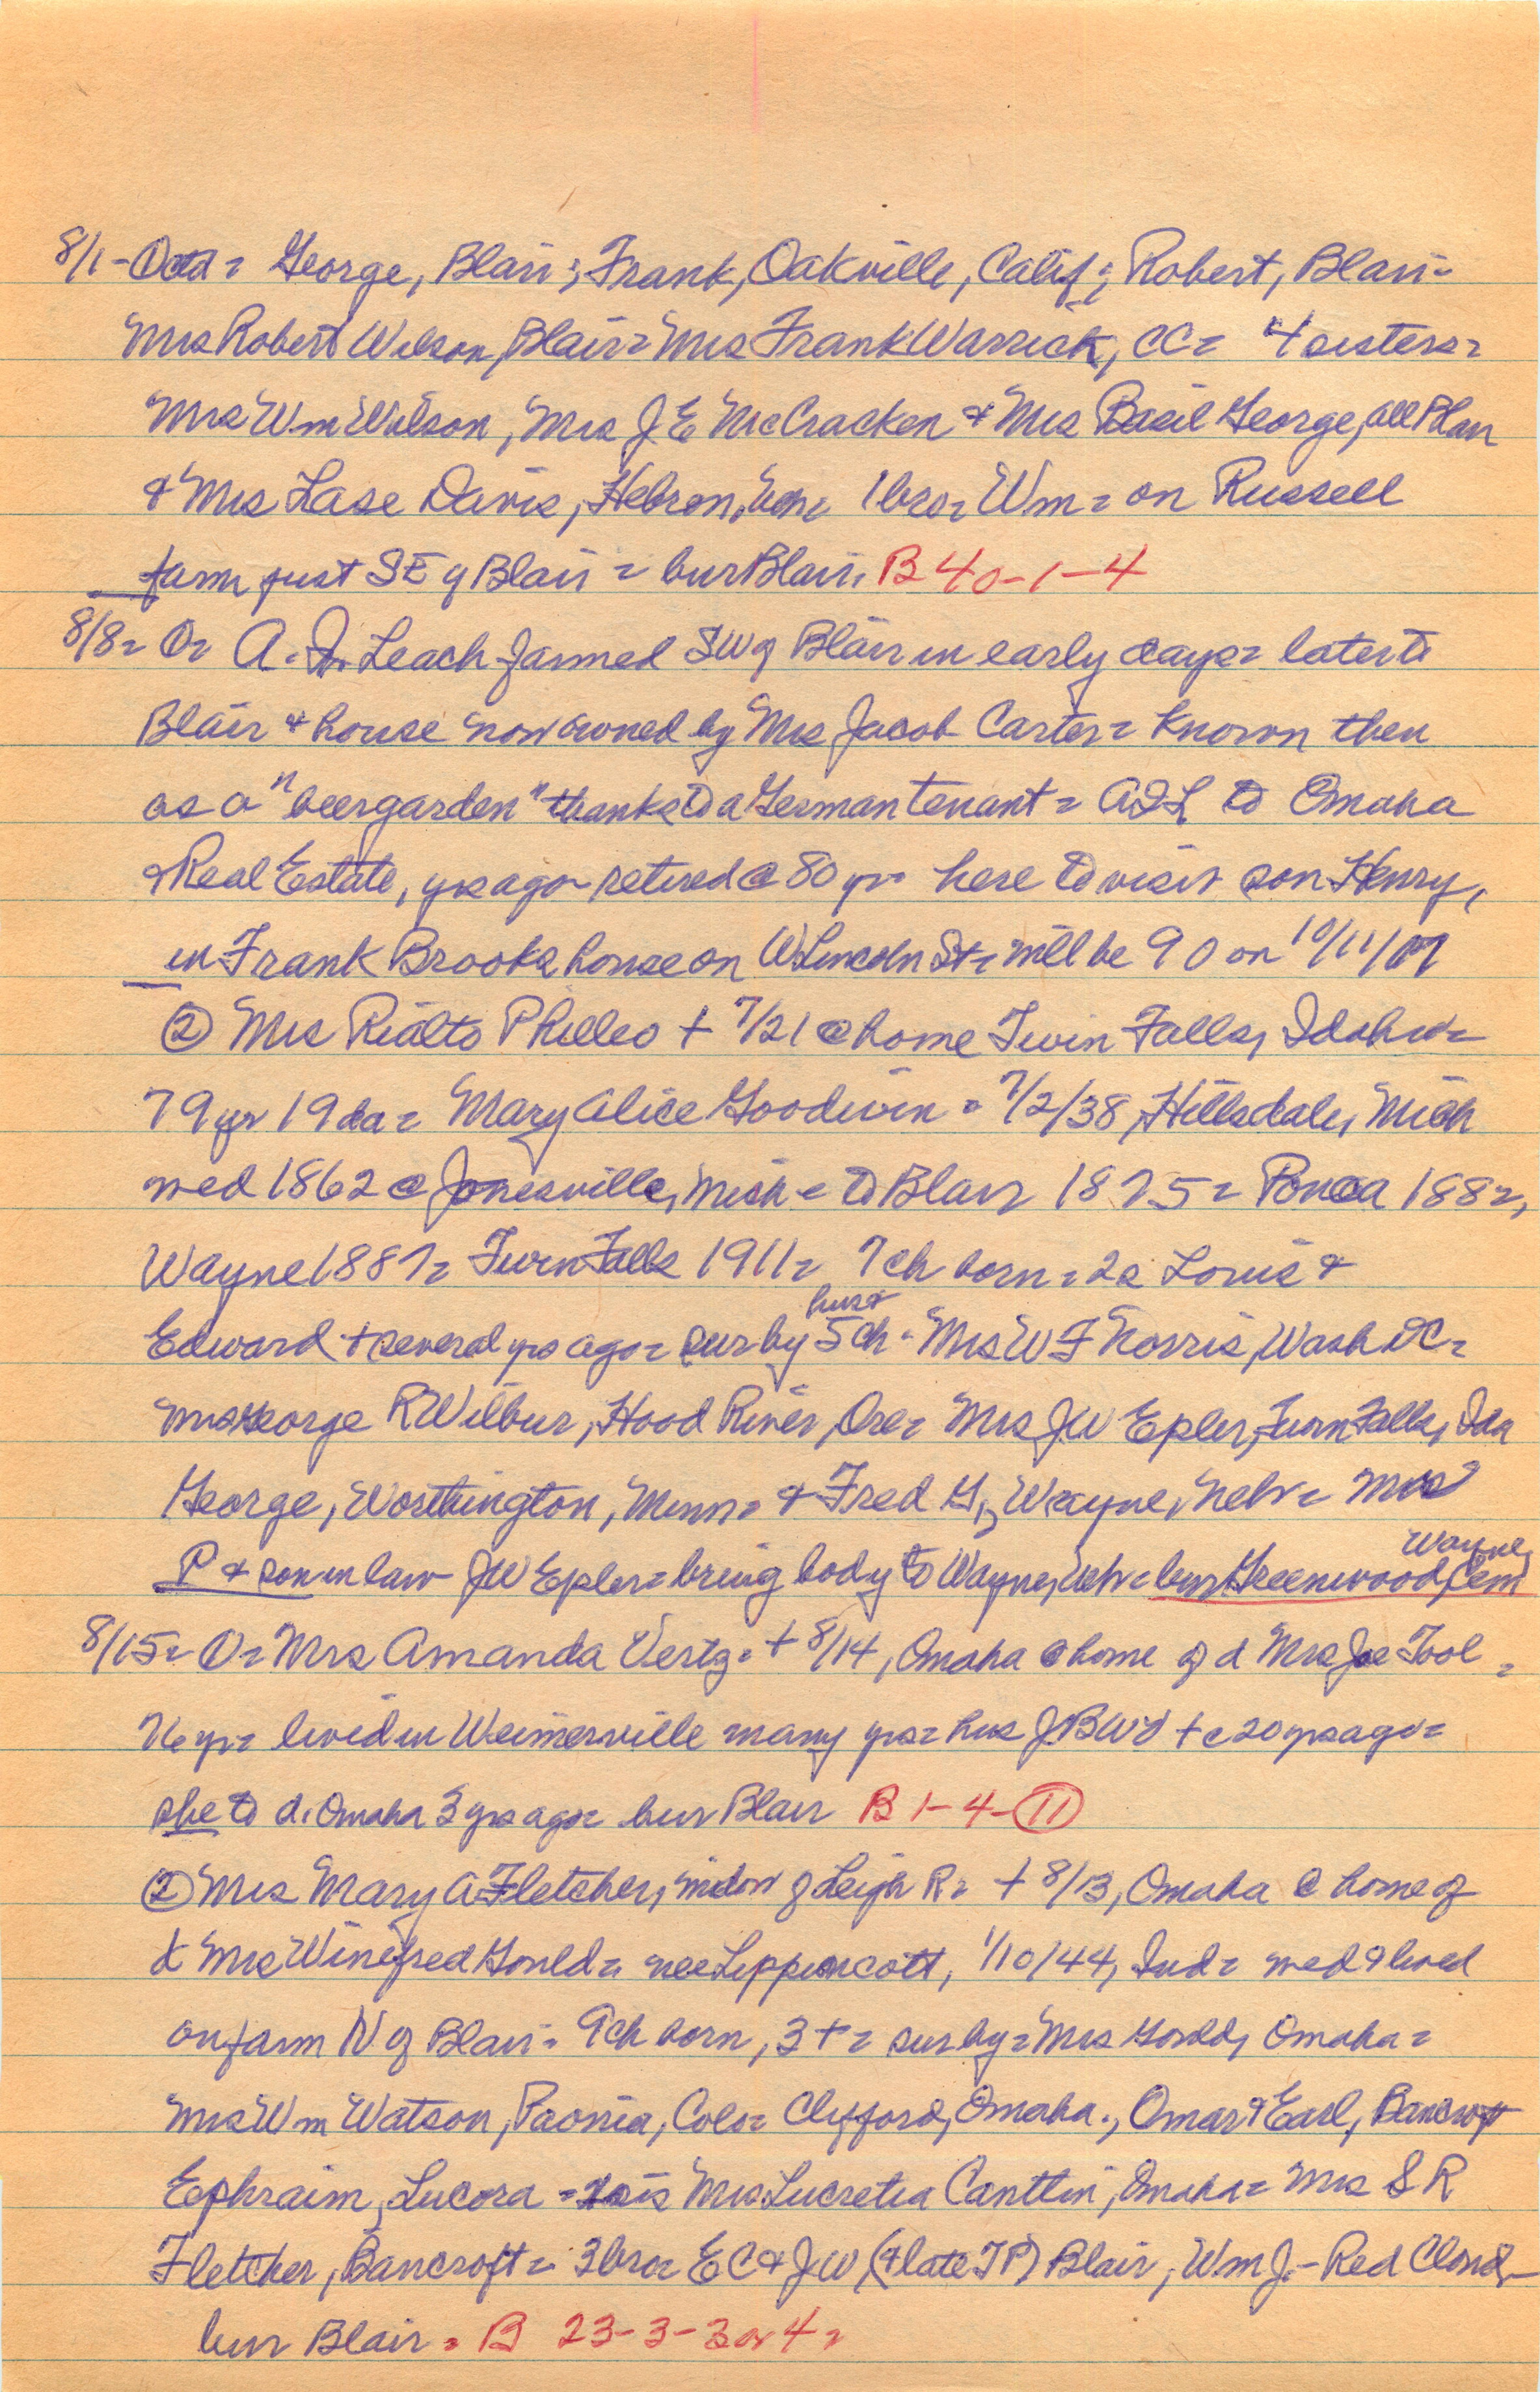 8/1 - Octd = George, Blair; Frank, Oakville, Calif; Robert, Blair -
Mrs Robert Wilson, Blair = Mrs Frank Warrick, CC = 4 sisters =
Mrs Wm Wilson, Mrs J E McCracken & Mrs Basil George, all Blair
& Mrs Lase Davis, Hebron, 1 bro = Wm = on Russell
farm just SE of Blair = bur Blair, B 40-1-4
8/8 = O = A. J. Leach farmed SW of Blair in early days = later to
Blair & house now owned by Mrs Jacob Carter = known then
as a "beergarden" thanks to a German tenant = AJL to Omaha
& Real Estate, yrs ago - retired @ 80 yr = here to visit son Henry,
in Frank Brooks house on W Lincoln St = will be 90 on 10/11/
② Mrs Rialto Philleo + 7/21 @ home Twin Falls, Idaho =
79 yr 19 da = Mary Alice Goodwin = 7/2/38, Hillsdale, Mich
med 1862 @ Jonesville, Mich = to Blair 1875 = Ponca 1882,
Wayne 1887 = Twin Falls 1911 = 7 ch born = 2s Louis &
Edward + several yrs ago = sur by hus & 5 ch = Mrs W F Norris, Wash DC =
Mrs George R Wilbur, Hood River, Ore = Mrs JW Epler, Twin Falls, Ida
George, Worthington, Minn = & Fred G, Wayne, Nebr =
P & son in law JW Epler = bring body to Wayne, Nebr = bur Greenwood Cem Wayne,
8/15 = O = Mrs Amanda Vertz = + 8/14, Omaha @ home of d Mrs Joe Tool =
76 yr = lived in Weimerville many yrs = hus JB + c 20 yrs ago =
she to d. Omaha 3 yrs ago = bur Blair B 1-4-11
② Mrs Mary A Fletcher, widow of Leigh R = + 8/13, Omaha @ home of
d Mrs Winefred Gould = nee Lippincott, 1/10/44, Ind = med & lived
on farm N of Blair = 9 ch born, 3 + = sur by = Mrs Gould, Omaha =
Mrs Wm Watson, Paonia, Colo = Clifford, Omaha., Omar & Earl, Bancroft
Ephraim, Lucora = sis Mrs Lucretia Cantlin, Omaha = Mrs S R
Fletcher, Bancroft = 3 bro = E C & J W, (& late T P) Blair, Wm J. - Red Cloud -
bur Blair = B 23-3-3 or 4 =